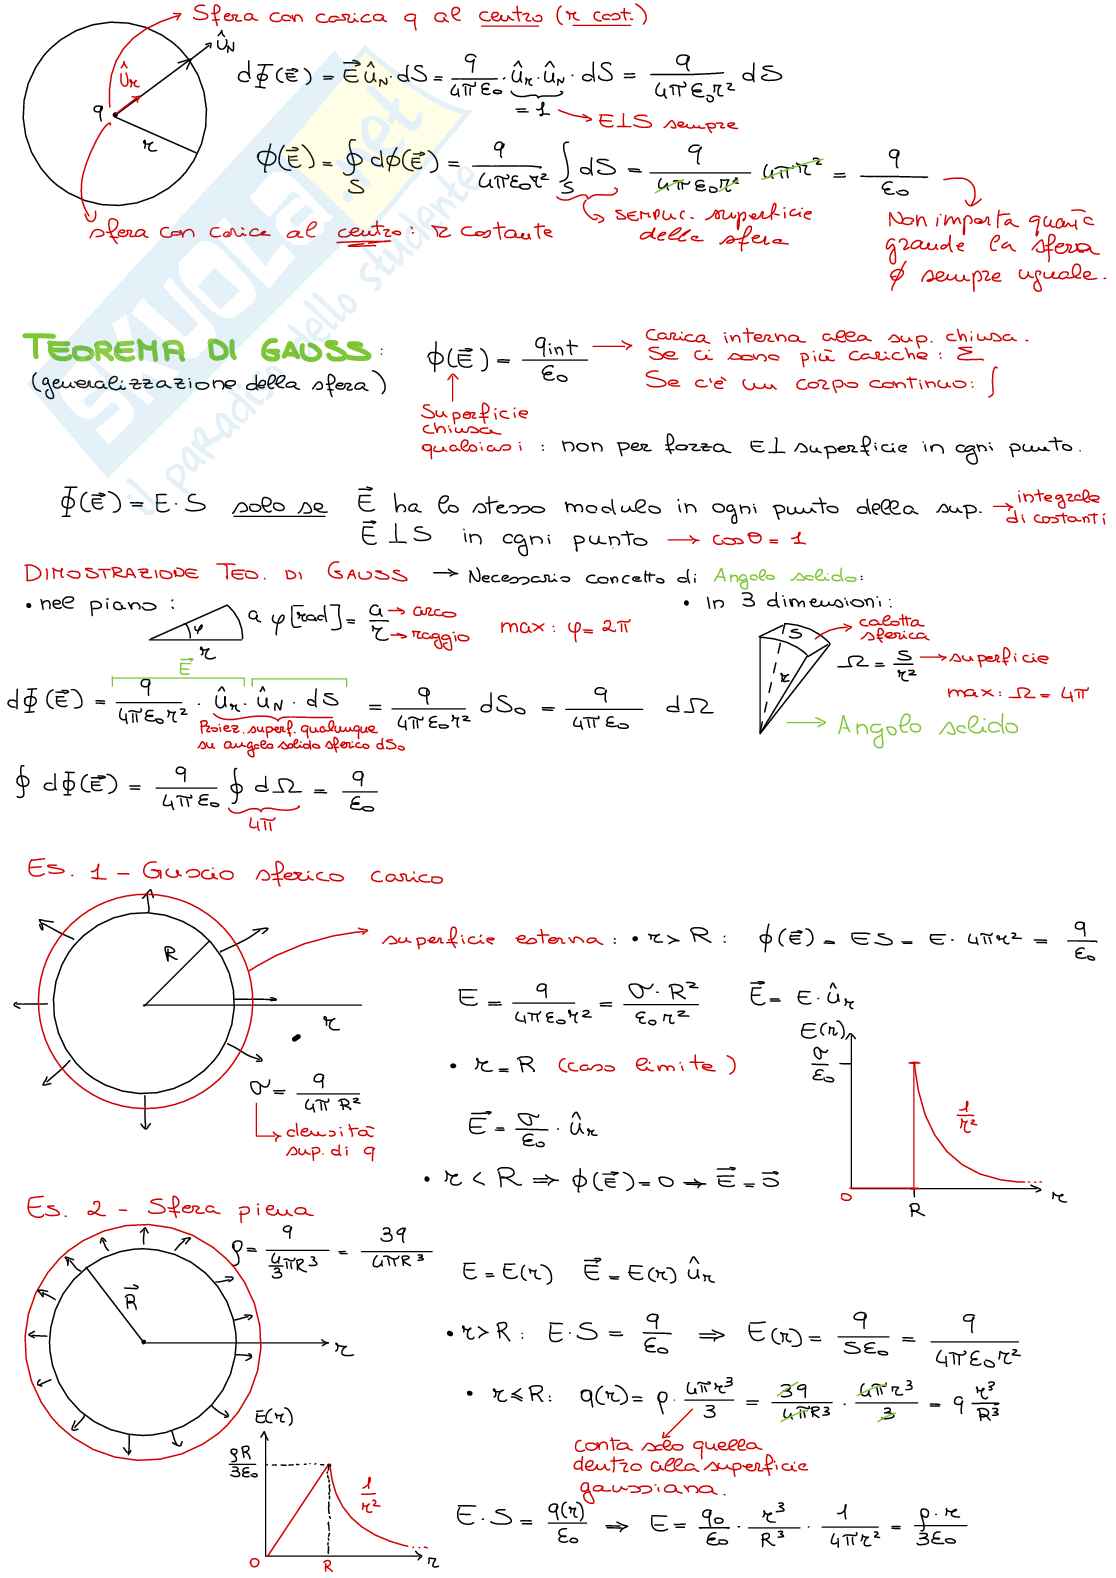 Sfera con carica q al centro (r cost.)
û_N
û_r
q
r
dΦ(E⃗) = E⃗ û_N · dS = q/4πε₀ · û_r · û_N · dS = q/4πε₀r² dS
= 1 → E⊥S sempre
ϕ(E⃗) = ∮_S dϕ(E⃗) = q/4πε₀r² ∫_S dS = q/4πε₀r² 4πr² = q/ε₀
SEMPLIC. superficie
della sfera
Non importa quant'è
grande la sfera
ϕ sempre uguale.
sfera con carica al centro: r costante
SKUOLA.net
il paradiso dello studente
TEOREMA DI GAUSS:
(generalizzazione della sfera)
ϕ(E⃗) = qint/ε₀
Carica interna alla sup. chiusa.
Se ci sono più cariche: Σ
Se c'è un corpo continuo: ∫
Superficie
chiusa
qualsiasi : non per forza E⊥ superficie in ogni punto.
Φ(E⃗) = E·S solo se E⃗ ha lo stesso modulo in ogni punto della sup. → integrale di costanti
E⃗ ⊥ S in ogni punto → cosθ = 1
DIMOSTRAZIONE TEO. DI GAUSS → Necessario concetto di Angolo solido:
• nel piano :
φ
r
a φ[rad] = a/r → arco → raggio
max: φ = 2π
• In 3 dimensioni:
S
r
calotta
sferica
Ω = S/r² → superficie
max: Ω = 4π
→ Angolo solido
E⃗
dΦ(E⃗) = q/4πε₀r² · û_r · û_N · dS = q/4πε₀r² dS₀ = q/4πε₀ dΩ
Proiez. superf. qualunque
su angolo solido sferico dS₀
∮ dΦ(E⃗) = q/4πε₀ ∮ dΩ = q/ε₀
4π
Es. 1 - Guscio sferico carico
R
r
superficie esterna: • r > R: ϕ(E⃗) = ES = E· 4πr² = q/ε₀
E = q/4πε₀r² = σ·R²/ε₀r² E⃗ = E·û_r
• r = R (caso limite)
σ = q/4πR²
densità
sup. di q
E⃗ = σ/ε₀ · û_r
• r < R ⇒ ϕ(E⃗) = 0 → E⃗ = 0⃗
E(r)
σ/ε₀
1/r²
0
R
r
Es. 2 - Sfera piena
ρ = q/(4/3 πR³) = 3q/4πR³
R⃗
r
E = E(r) E⃗ = E(r) û_r
• r > R: E·S = q/ε₀ ⇒ E(r) = q/Sε₀ = q/4πε₀r²
• r ⩽ R: q(r) = ρ · 4πr³/3 = 3q/4πR³ · 4πr³/3 = q r³/R³
conta solo quella
dentro alla superficie
gaussiana.
E·S = q(r)/ε₀ ⇒ E = q₀/ε₀ · r³/R³ · 1/4πr² = ρ·r/3ε₀
E(r)
ρR/3ε₀
1/r²
0
R
r